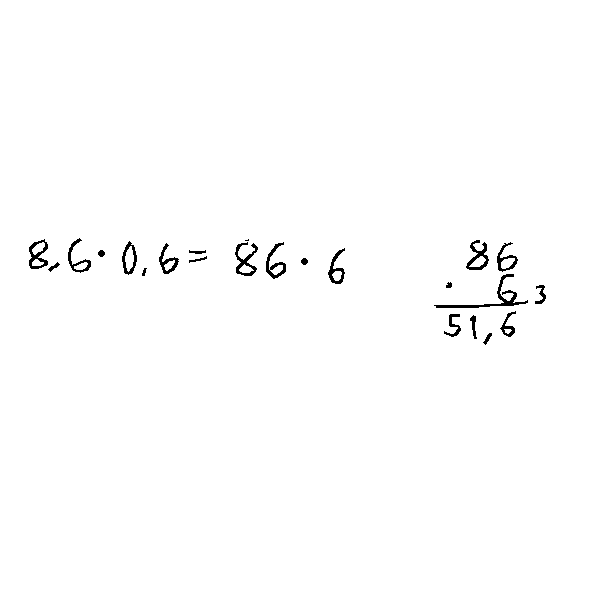 8,6 · 0,6 = 86 · 6
86
· 6 3
51,6